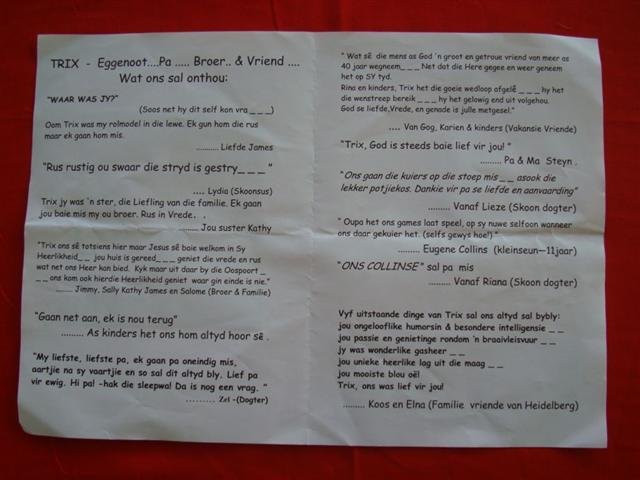 TRIX - Eggenoot....Pa ..... Broer.. & Vriend ....
Wat ons sal onthou:
"WAAR WAS JY?"
(Soos net hy dit self kon vra _ _ _)
Oom Trix was my rolmodel in die lewe. Ek gun hom die rus
maar ek gaan hom mis.
.......... Liefde James
"Rus rustig ou swaar die stryd is gestry_ _ _ "
.... Lydia (Skoonsus)
Trix jy was 'n ster, die Liefling van die familie. Ek gaan
jou baie mis my ou broer. Rus in Vrede. .
......... Jou suster Kathy
"Trix ons sê totsiens hier maar Jesus sê baie welkom in Sy
Heerlikheid_ _ jou huis is gereed_ _ _ geniet die vrede en rus
wat net ons Heer kan bied. Kyk maar uit daar by die Oospoort _
_ _ ons kom ook hierdie Heerlikheid geniet waar gin einde is nie."
....... Jimmy, Sally Kathy James en Salome (Broer & Familie)
"Gaan net aan, ek is nou terug"
......... As kinders het ons hom altyd hoor sê .
"My liefste, liefste pa, ek gaan pa oneindig mis,
aartjie na sy vaartjie en so sal dit altyd bly. Lief pa
vir ewig. Hi pa! -hak die sleepwa! Da is nog een vrag. "
......... Zel -(Dogter)
" Wat sê die mens as God 'n groot en getroue vriend van meer as
40 jaar wegneem_ _ _ Net dat die Here gegee en weer geneem
het op SY tyd.
Rina en kinders, Trix het die goeie wedloop afgelê _ _ _ hy het
die wenstreep bereik _ _ _ hy het gelowig end uit volgehou.
God se liefde,Vrede, en genade is julle metgesel."
.... Van Gog, Karien & kinders (Vakansie Vriende)
"Trix, God is steeds baie lief vir jou! "
......... Pa & Ma Steyn .
"Ons gaan die kuiers op die stoep mis_ _ asook die
lekker potjiekos. Dankie vir pa se liefde en aanvaarding"
......... Vanaf Lieze (Skoon dogter)
" Oupa het ons games laat speel, op sy nuwe selfoon wanneer
ons daar gekuier het. (selfs gewys hoe!) "
......... Eugene Collins (kleinseun—11jaar)
"ONS COLLINSE" sal pa mis
......... Vanaf Riana (Skoon dogter)
Vyf uitstaande dinge van Trix sal ons altyd sal bybly:
jou ongelooflike humorsin & besondere intelligensie _ _
jou passie en genietinge rondom 'n braaivleisvuur _ _
jy was wonderlike gasheer _ _
jou unieke heerlike lag uit die maag _ _
jou mooiste blou oë!
Trix, ons was lief vir jou!
......... Koos en Elna (Familie vriende van Heidelberg)